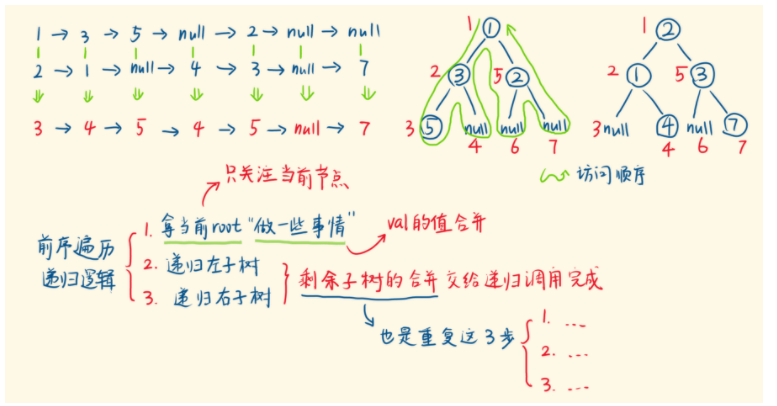 1 → 3 → 5 → null → 2 → null → null
2 → 1 → null → 4 → 3 → null → 7
3 → 4 → 5 → 4 → 5 → null → 7
1 ①
2 ③ 5 ②
3 ⑤ null null null
4 6 7
1 ②
2 ① 5 ③
3 null ④ null ⑦
4 6 7
访问顺序
只关注当前节点
前序遍历
递归逻辑
1. 拿当前root“做一些事情”
val的值合并
2. 递归左子树
3. 递归右子树
剩余子树的合并交给递归调用完成
也是重复这3步
1. ...
2. ...
3. ...